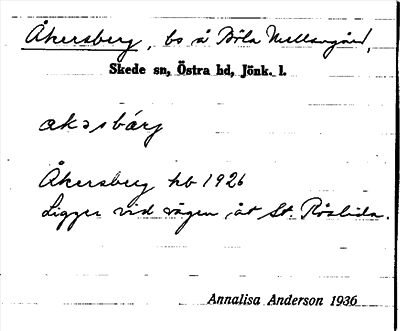 Åkersberg, bs å Böla Mellangård,
Skede sn, Östra hd, Jönk. l.
akəsbärj
Åkersberg kb 1926
Ligger vid vägen åt St. Röslida.
Annalisa Anderson 1936